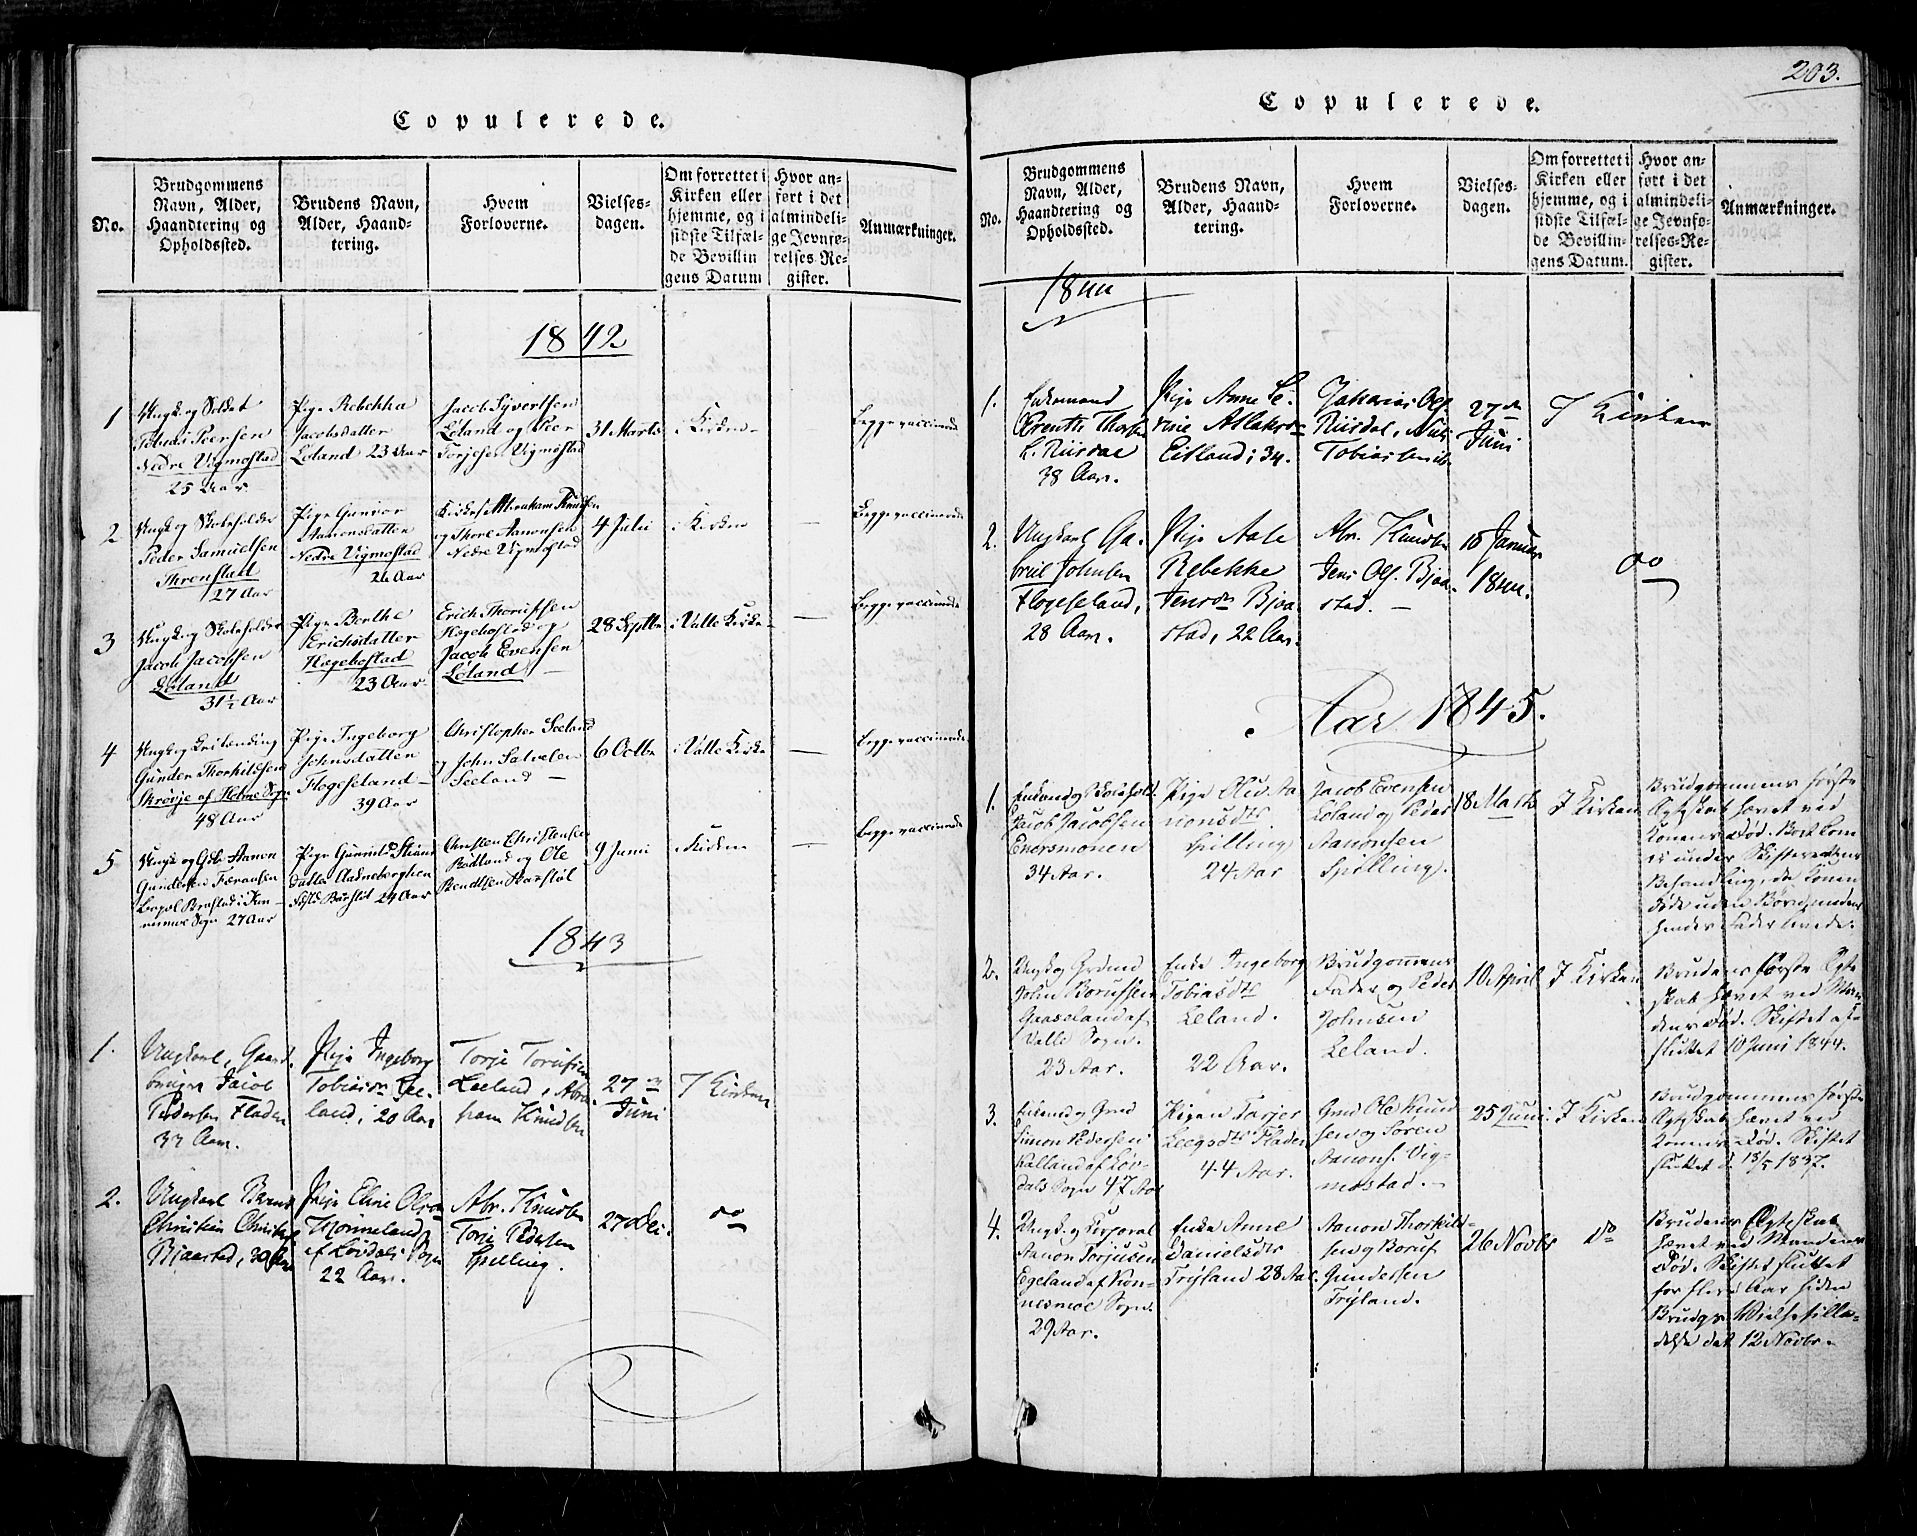 Copulerede.
No.
Brudgommens
Navn, Alder,
Haandtering og
Opholdssted.
Brudens Navn,
Alder, Haand-
tering.
Hvem
Forloverne.
Vielses-
dagen.
Om forrettet i
Kirken eller
hjemme, og i
sidste Tilfæl-
de Bevillin
gens Datum
Hvor an-
ført i det
almindeli-
ge Jevnfø-
relses-Re-
gister.
Anmærkninger.
1842
1
Ungk og Soldat
Tobias Peersen
Nedre Vigmostad
25 Aar
Pige Rebekka
Jacobsdatter
Löland 23 Aar
Jacob Syvertsen
Löland og Peer
Torjesen Vigmostad
31 Marts
i Kirken
Begge vaccinerede
2
Ungk og Skoleholder
Peder Samuelsen
Threnstad
27 Aar
Pige Gunvor
Aanonsdatter
Nedre Vigmostad
26 Aar
Kirkes. Abraham Knudsen
og Thore Aanonsen
Nedre Vigmostad
4 Juli
i Kirken
—
Begge vaccinerede
3
Ungk og Skoleholder
Jacob Jacobsen
Löland
31½ Aar
Pige Berthe
Erichsdatter
Hægebostad
23 Aar
Erich Thorussen
Hægebostad og
Jacob Evensen
Löland —
28 Septbr
i Valle Kirke
—
Begge vaccinerede
4
Gunder Thorkildsen
Skrövje af Holme Sogn
48 Aar
Pige Ingeborg
Johnsdatter
Flogeseland
39 Aar
Christopher Seeland
og John Salvesen
Seeland —
6 Octbr
i Valle Kirke
—
Begge vaccinerede
5
Ungk og Gdbr Aanon
Gundersen
nesmoe Sogn 27 Aar
Pige Gunvild
datter
24 Aar
Christen Christensen
Rödland og Ole
Bendtsen
9 Juni
i Kirken
—
Begge vaccinerede
1843
1.
Ungkarl, Gaard-
bruger Jacob
Pedersen Fladen
33 Aar.
Pige Ingeborg
Tobiasdr Lee-
land, 20 Aar
Torje Torjusen
Leeland, Abra-
ham Knudsen
27de
Juni
I Kirken
2.
Ungkarl Bernt
Christian Christens.
Bjaastad, 30 Aar
Pige Eline Olsdr
af Løvdals Sogn
22 Aar.
Abr. Knudsen
Torje Pedersen
Spilling.
27 Dec.
do
203.
Copulerede.
No.
Brudgommens
Navn, Alder,
Haandtering og
Opholdssted.
Brudens Navn,
Alder, Haand-
tering.
Hvem
Forloverne.
Vielses-
dagen.
Om forrettet i
Kirken eller
hjemme, og i
sidste Tilfæl-
de Bevillin-
gens Datum.
Hvor an-
ført i det
almindeli-
ge Jevnfø-
relses-Re-
gister.
Anmærkninger.
1844
1.
Enkemand
Berenth Thorsen
L. Riisdal
38 Aar.
Pige Anne Se-
rine Atlaksdr
Eikland, 34.
Zakarias Ols.
Riisdal, Nils
Tobiassen ib.
27de
Juni
I Kirken
2.
Ungkarl Ga-
briel Johnsen
Flogeseland,
28 Aar.
Pige Aale
Rebekke
Jensdr Bjaa-
stad, 22 Aar.
Abr. Knudsen
Jens Ols. Bjaa-
stad. —
10 Januar
1844.
do
Aar 1845.
1.
Enkemd og Skolehold.
Jacob Jacobsen
Enersmonen
34 Aar.
Pige Oliv. Aa-
nonsdtr
Spilling
24 Aar
Jacob Evensen
Löland og Peder
Aanonsen
Spilling.
18 Marts
I Kirken
Brudgommens første
Ægteskab hævet ved
Konens Død. Boet kom
ei under Skifterettens
Behandling, da Konen
døde uden Børn, inden
hendes Fader levede.
2.
Ungk og Grdmd
John Borussen
Gaaseland af
Valle Sogn.
23 Aar.
Enke Ingeborg
Tobiasdtr
Leland.
22 Aar.
Brudgommens
Fader og Peder
Johnsen
Leland.
10 April
I Kirken
Brudens første Ægte
skab hævet ved Man
dens Død. Skiftet af-
sluttet 10 Juni 1844.
3.
Enkemd og Grmd
Simon Pedersen
Kalland af Löv-
dals Sogn 47 Aar
Pigen Torjer
Leegsdtr Fladen
44 Aar.
Grmd Ole Knud
sen og Soren
Aanons. Vig-
mostad. —
25 Juni.
I Kirken
Brudgommens første
Ægteskab hævet ved
Konens Død. Skiftet
sluttet d. 18/5 1837.
4.
Ungk. og Corporal
Aanon Torjusen
Egeland af Kon-
nesmoe Sogn.
29 Aar.
Enke Anne
Danielsdtr
Tryland 28 Aar.
Aanon Thorkild-
sen og Boruf
Gundersen
Tryland.
26 Novbr
do
Brudens Ægteskab
hævet ved Mandens
Død. Skiftet sluttet
for flere Aar siden
Brudgs Vielsestilla-
delse dat. 12 Novbr.